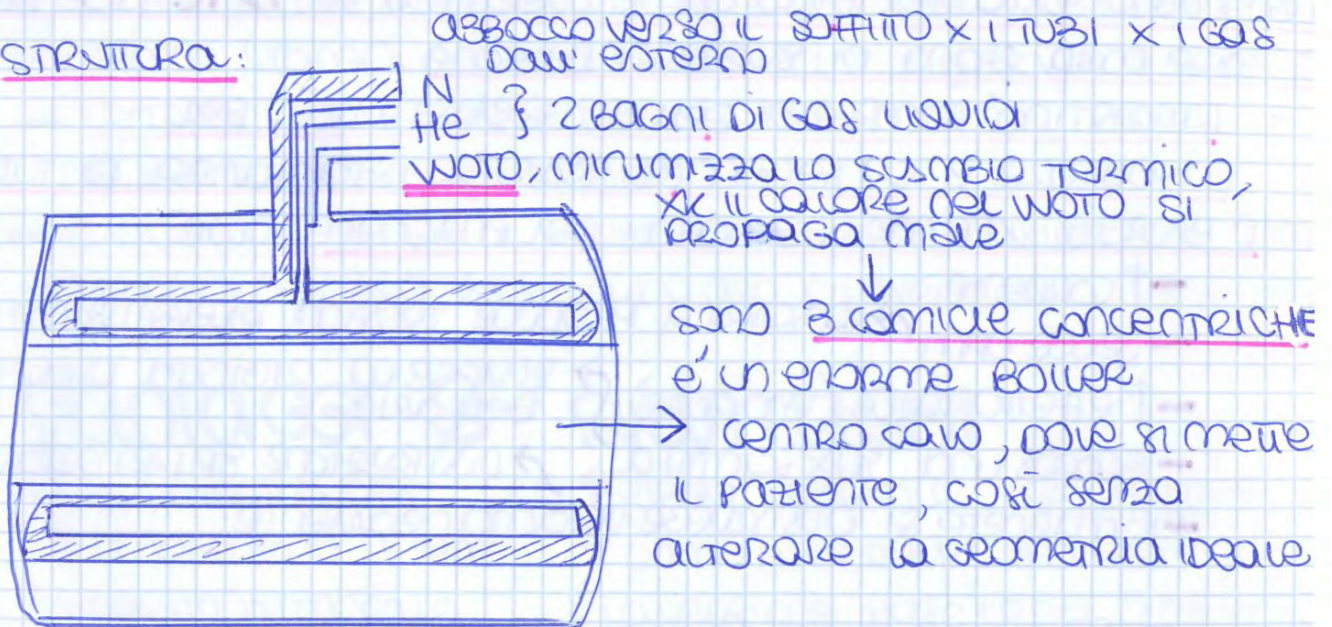 STRUTTURA:
ABBOCCO VERSO IL SOFFITTO X I TUBI X I GAS
DALL' ESTERNO
N
He } 2 BAGNI DI GAS LIQUIDI
VUOTO, MINIMIZZA LO SCAMBIO TERMICO,
XK IL CALORE NEL VUOTO SI
PROPAGA MALE
SONO 3 CAMICIE CONCENTRICHE
E' UN ENORME BOILER
CENTRO CAVO, DOVE SI METTE
IL PAZIENTE, COSÌ SENZA
ALTERARE LA GEOMETRIA IDEALE